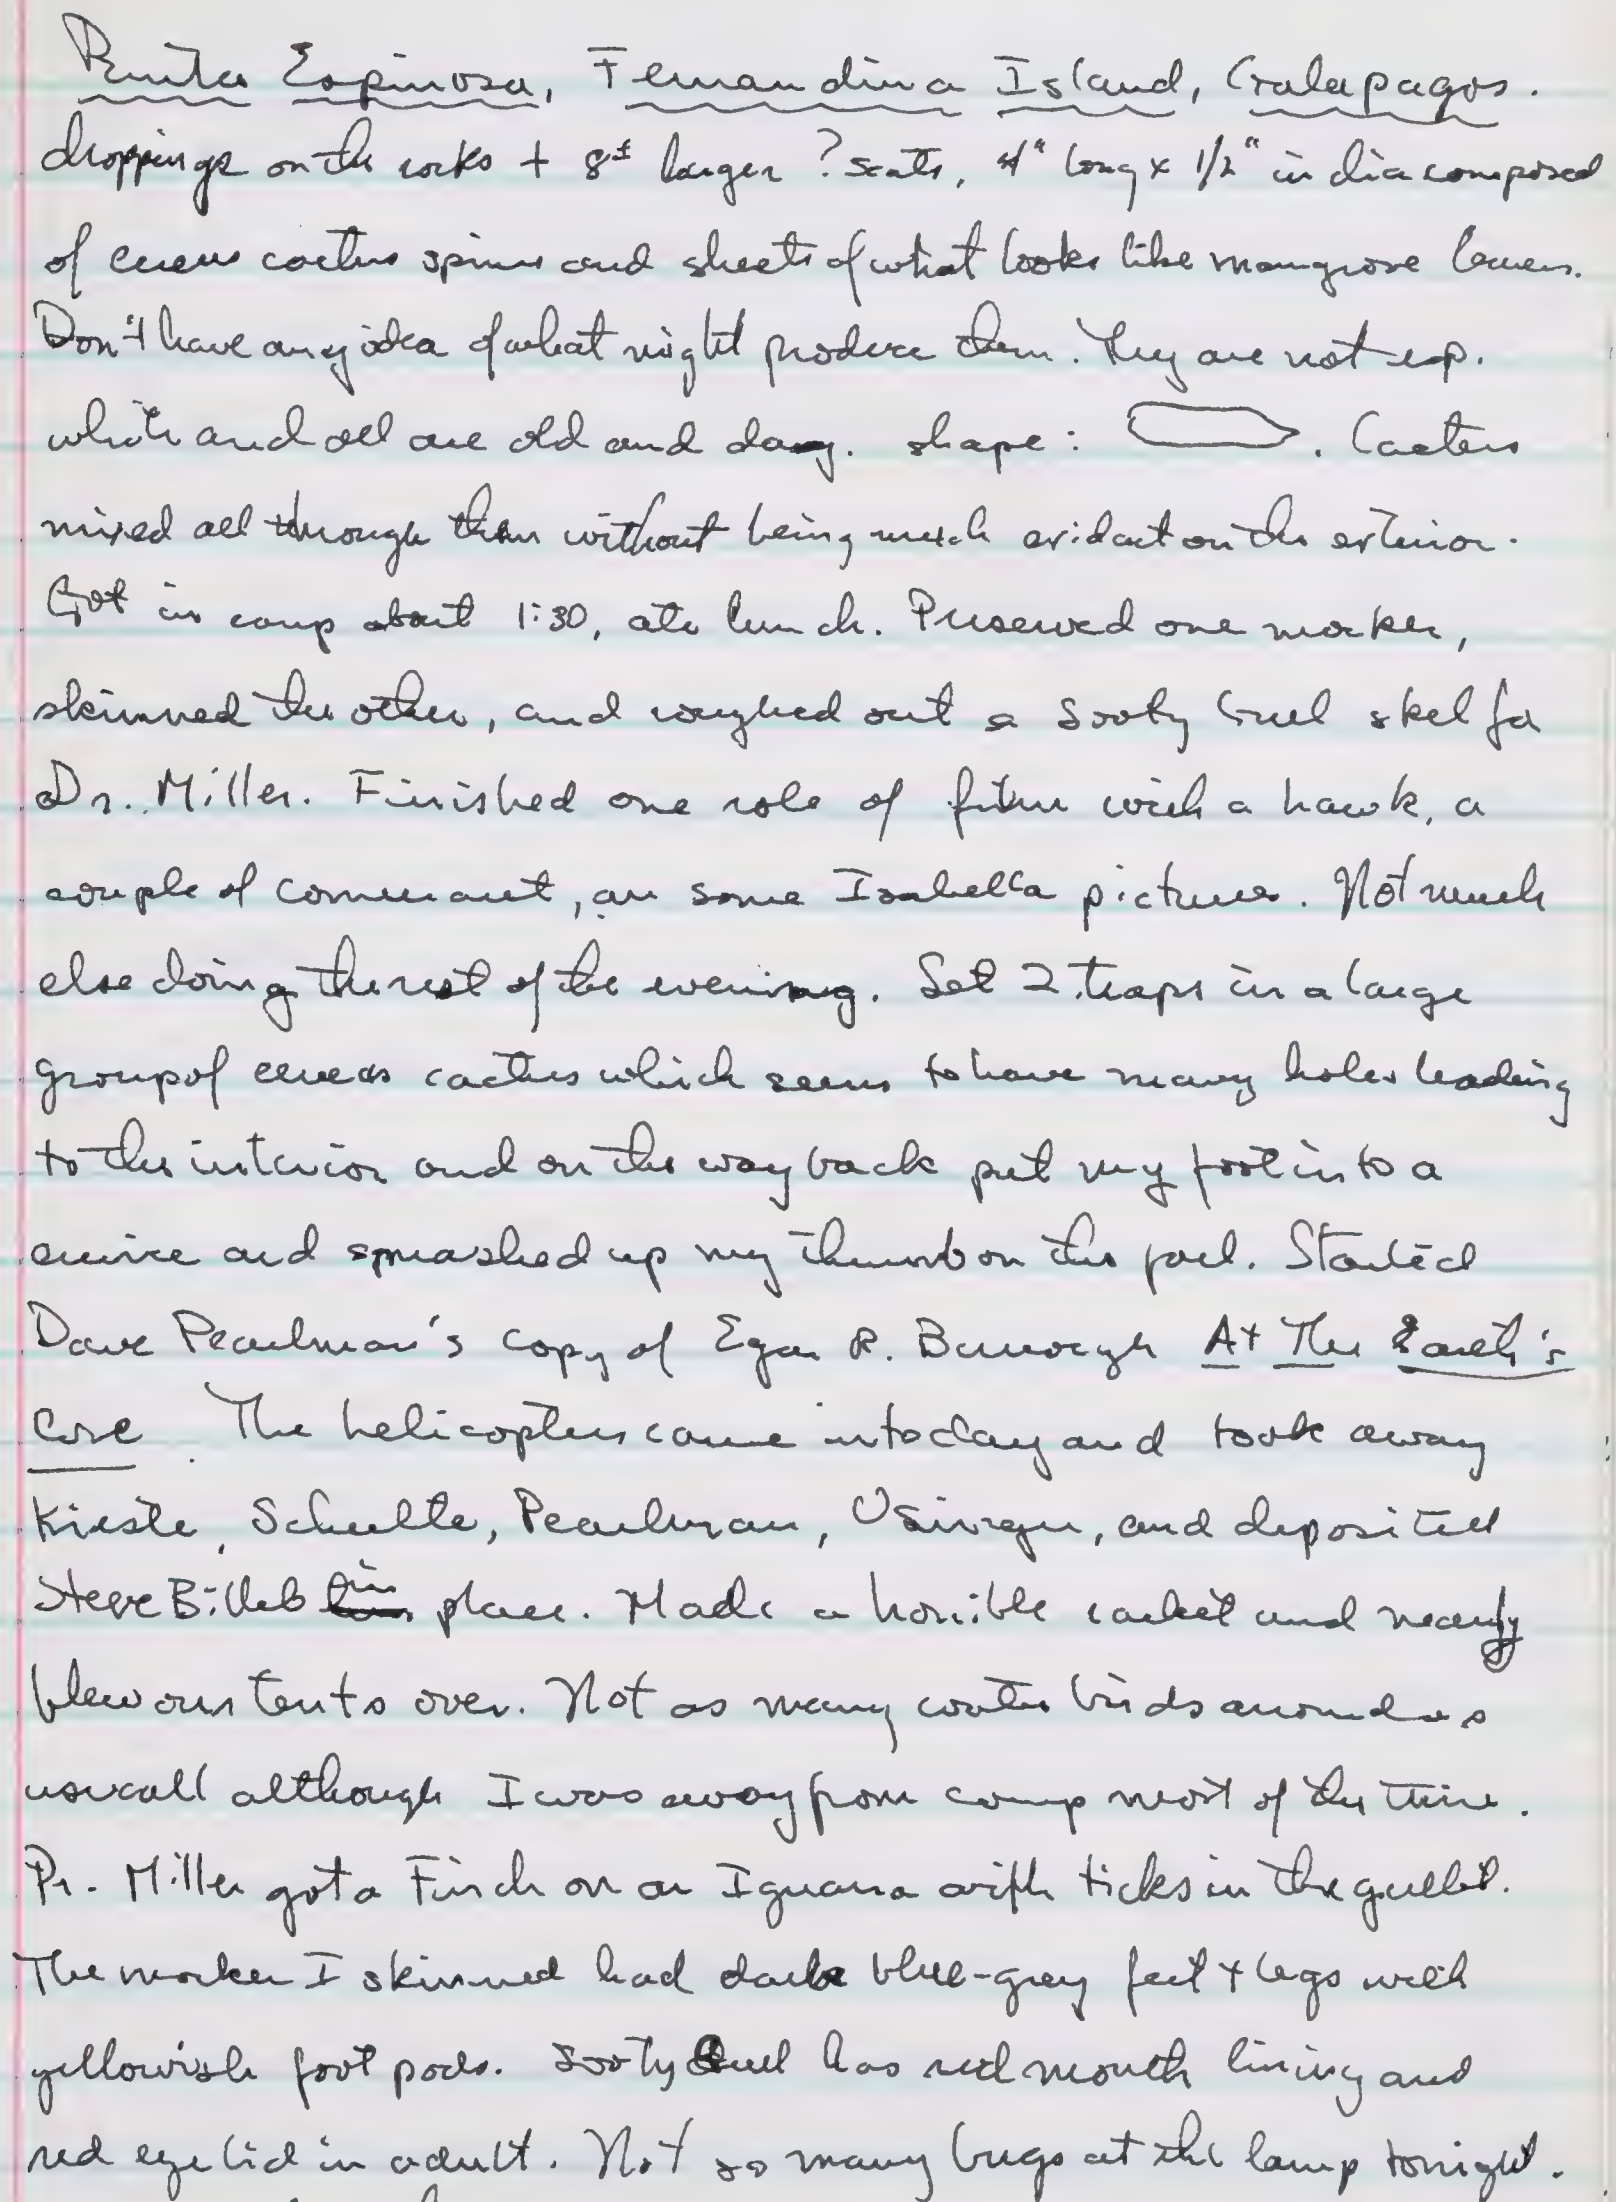 Punta Espinosa, Fernandina Island, Galapagos.
droppings on the rocks + 8± larger ? scats, 4" long x 1/2" in dia composed
of cereus cactus spines and sheets of what looks like mangrove leaves.
Don't have any idea of what might produce them. They are not esp.
white and all are old and dry. shape: . Cactus
mixed all through them without being much evident on the exterior.
Got in camp about 1:30, ate lunch. Preserved one mocker,
skinned the other, and roughed out a Sooty Gull skel for
Dr. Miller. Finished one role of film with a hawk, a
couple of cormorant, an some Isabella pictures. Not much
else doing the rest of the evening. Set 2 traps in a large
group of cereus cactus which seems to have many holes leading
to the interior and on the way back put my foot into a
crevice and smashed up my thumb on the fall. Started
Dave Pearlman's copy of Egar R. Burrough At The Earth's
Core. The helicopters came in today and took away
Kieste, Schulte, Pearlman, Usinger, and deposited
Steve Billeb in place. Made a horrible racket and nearly
blew our tents over. Not as many water birds around as
usuall although I was away from camp most of the time.
Dr. Miller got a Finch on an Iguana with ticks in the gullet.
The mocker I skinned had dark blue-grey feet + legs with
yellowish foot pads. Sooty Gull has red mouth lining and
red eyelid in adult. Not so many bugs at the lamp tonight.